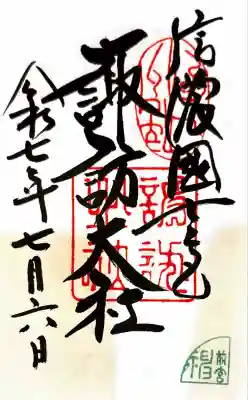 信濃國一之宮
諏訪大社
令和七年七月六日
諏訪
大社
前宮